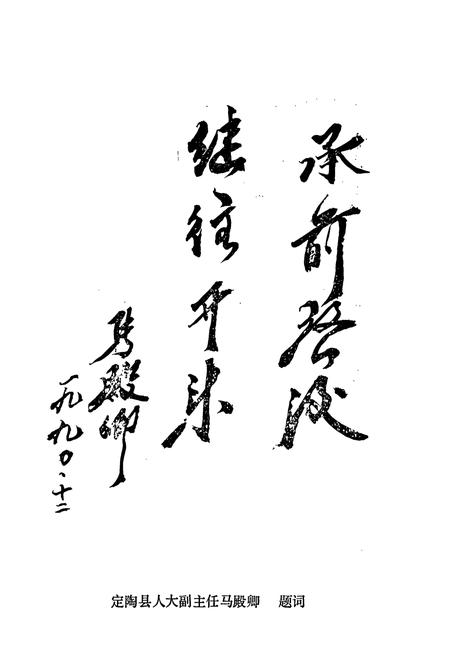 承前启后
继往开来
马殿卿
一九九〇、十二
定陶县人大副主任马殿卿 题词